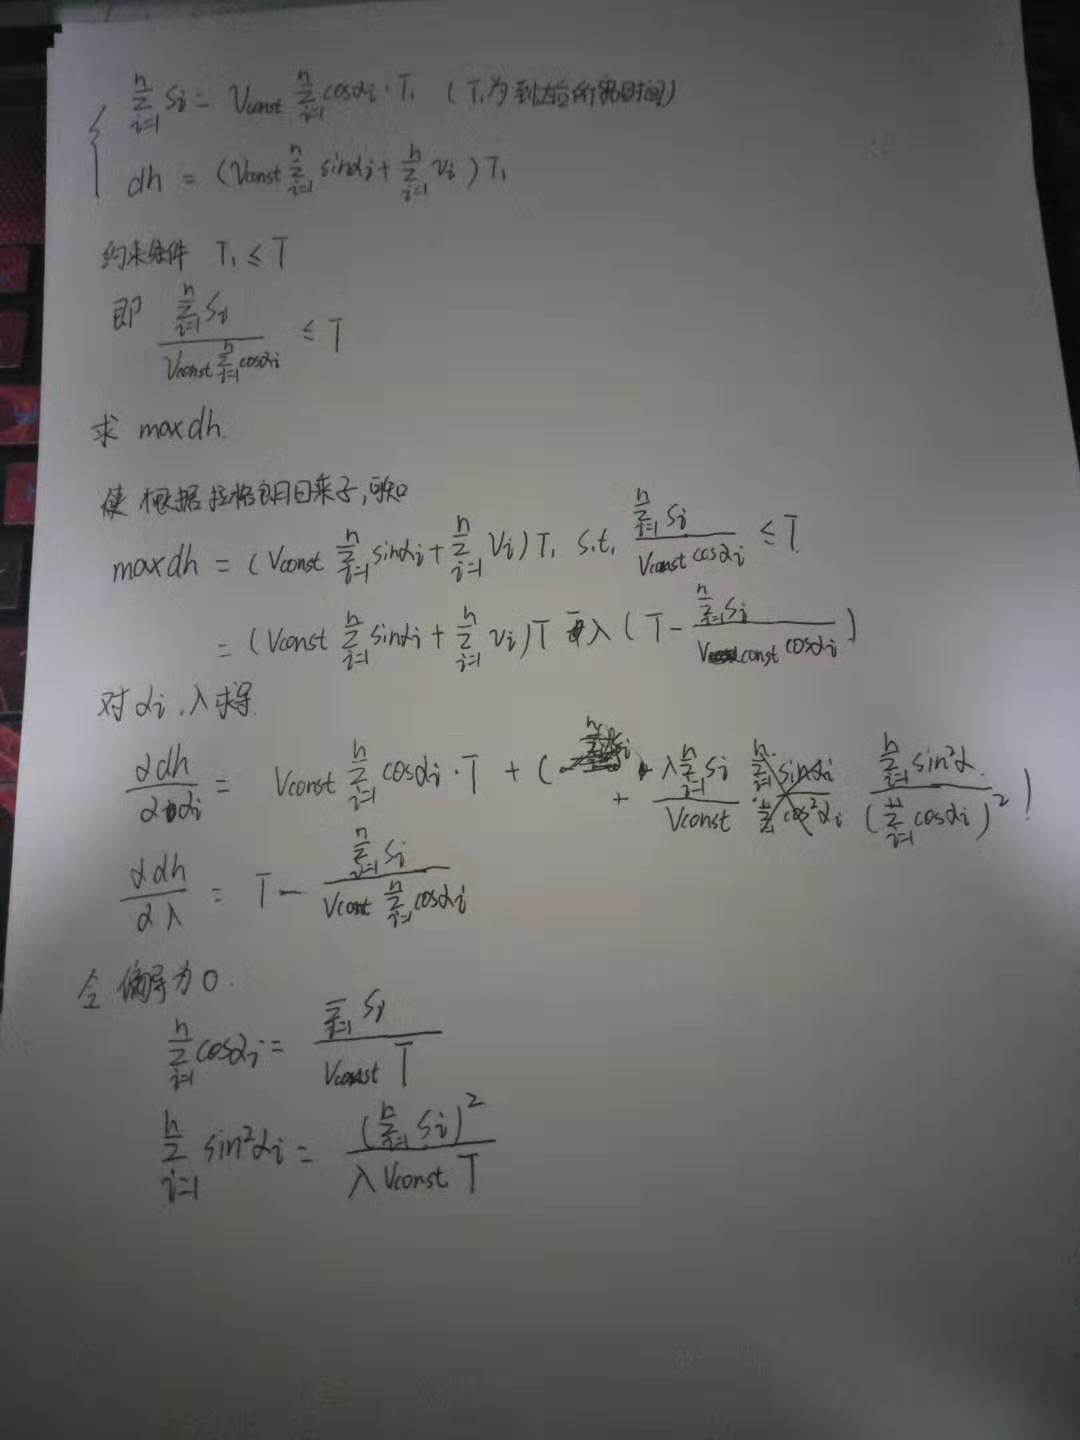 ∑_{i=1}^{n} s_i = V_const ∑_{i=1}^{n} cosα_i · T_1 (T_1为到达后所需时间)
dh = (V_const ∑_{i=1}^{n} sinα_i + ∑_{i=1}^{n} v_i) T_1
约束条件 T_1 ≤ T
即 \frac{∑_{i=1}^{n} s_i}{V_const ∑_{i=1}^{n} cosα_i} ≤ T
求 max dh.
使 根据拉格朗日乘子,可知
max dh = (V_const ∑_{i=1}^{n} sinα_i + ∑_{i=1}^{n} v_i) T_1 s.t. \frac{∑_{i=1}^{n} s_i}{V_const cosα_i} ≤ T
= (V_const ∑_{i=1}^{n} sinα_i + ∑_{i=1}^{n} v_i) T λ (T - \frac{∑_{i=1}^{n} s_i}{V_const cosα_i})
对α_i, λ求导.
\frac{αdh}{αα_i} = V_const ∑_{i=1}^{n} cosα_i · T + ( + \frac{λ∑_{i=1}^{n} s_i}{V_const} \frac{∑_{i=1}^{n} sin²α}{(∑_{i=1}^{n} cosα_i)²} )
\frac{αdh}{αλ} = T - \frac{∑_{i=1}^{n} s_i}{V_const ∑_{i=1}^{n} cosα_i}
令偏导为0.
∑_{i=1}^{n} cosα_i = \frac{∑_{i=1} s_i}{V_const T}
∑_{i=1}^{n} sin²α_i = \frac{(∑_{i=1}^{n} s_i)²}{λ V_const T}